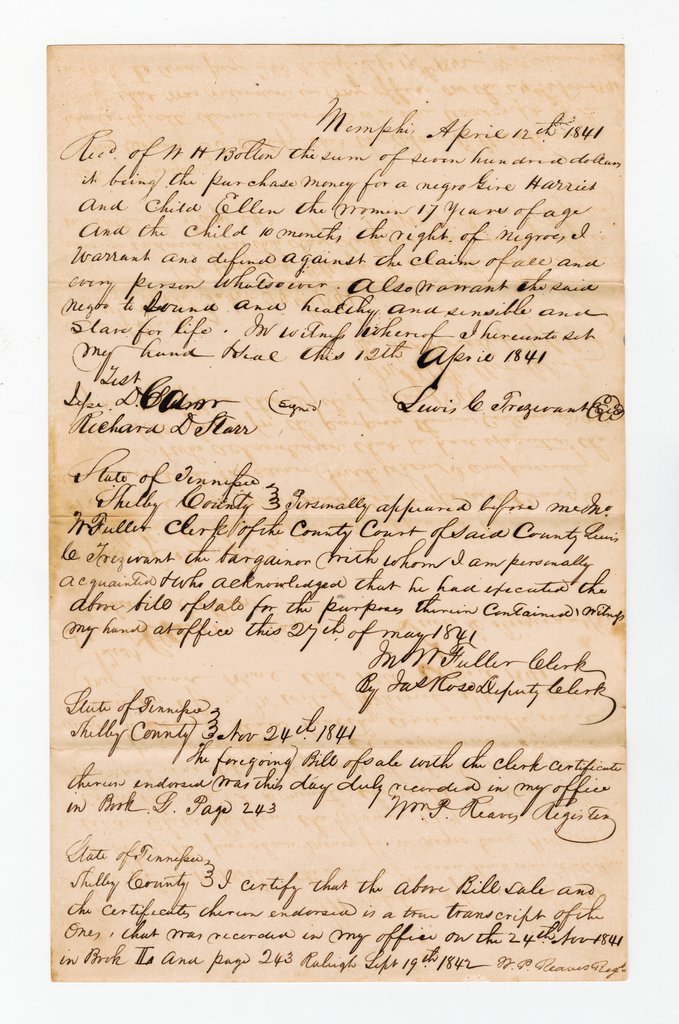 Memphis April 12th 1841
Recd. of W H Bolton the sum of seven hundred dollars
it being the purchase money for a negro Girl Harriet
and Child Ellen the women 17 Years of age
and the child 10 months the right of negroes I
warrant and defend against the claim of all and
every person whatsoever. Also warrant the said
negro to Sound and healthy and sensible and
Slave for life. In witness whereof I hereunto set
my hand & seal this 12th April 1841
Test
D.
(Signed) Lewis C Trezevant
Richard D Starr
State of Tennessee
Shelby County Personally appeared before me Jno
W Fuller Clerk of the County Court of said County Lewis
C Trezevant the bargainor with whom I am personally
acquainted & who acknowledged that he had executed the
above bill of sale for the purposes therein Contained, witness
my hand at office this 27th of may 1841
Jn W Fuller Clerk
By Jas Rose Deputy Clerk
State of Tennessee
Shelby County Nov 24th 1841
The foregoing Bill of sale with the clerk certificate
thereon endorsed was this day duly recorded in my office
in Book G. Page 243
Wm. P. Reaves Register
State of Tennessee
Shelby County I certify that the above Bill sale and
the certificates thereon endorsed is a true transcript of the
Ones, that was recorded in my office on the 24th Nov 1841
in Book and page 243 Raleigh Sept 19th 1842 W. P. Reaves Regr